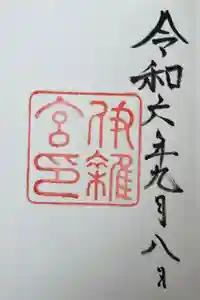 令和六年九月八日
伊雜
宮印